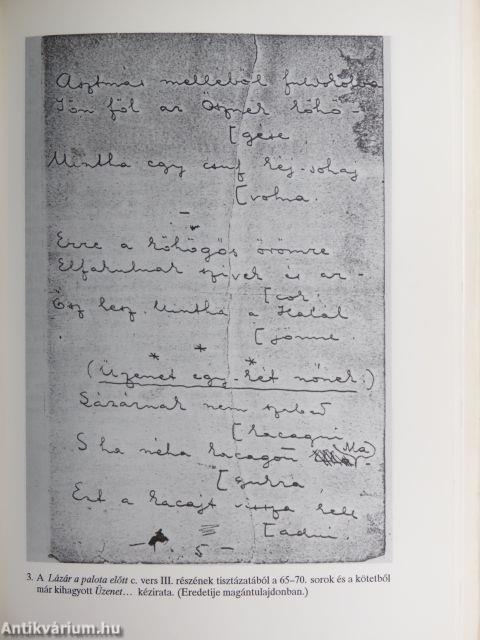 Asztmás melléből fuldokolva
Jön föl az Ősznek köhö-
[gése,
Mintha egy csuf kéj-sohaj
[volna.
Erre a köhögős örömre
Elfakulnak szivek és ar-
[cok:
Ősz lesz. Mintha a Halál
[jönne.
* * *
(Üzenet egy-két nőnek.)
Lázárnak nem szabad
[kacagni
S ha néha kacagott Ma-
[gukra
Ezt a kacajt vissza kell
[adni.
3. A Lázár a palota előtt c. vers III. részének tisztázatából a 65–70. sorok és a kötetből
már kihagyott Üzenet... kézirata. (Eredetije magántulajdonban.)
Antikvárium.hu